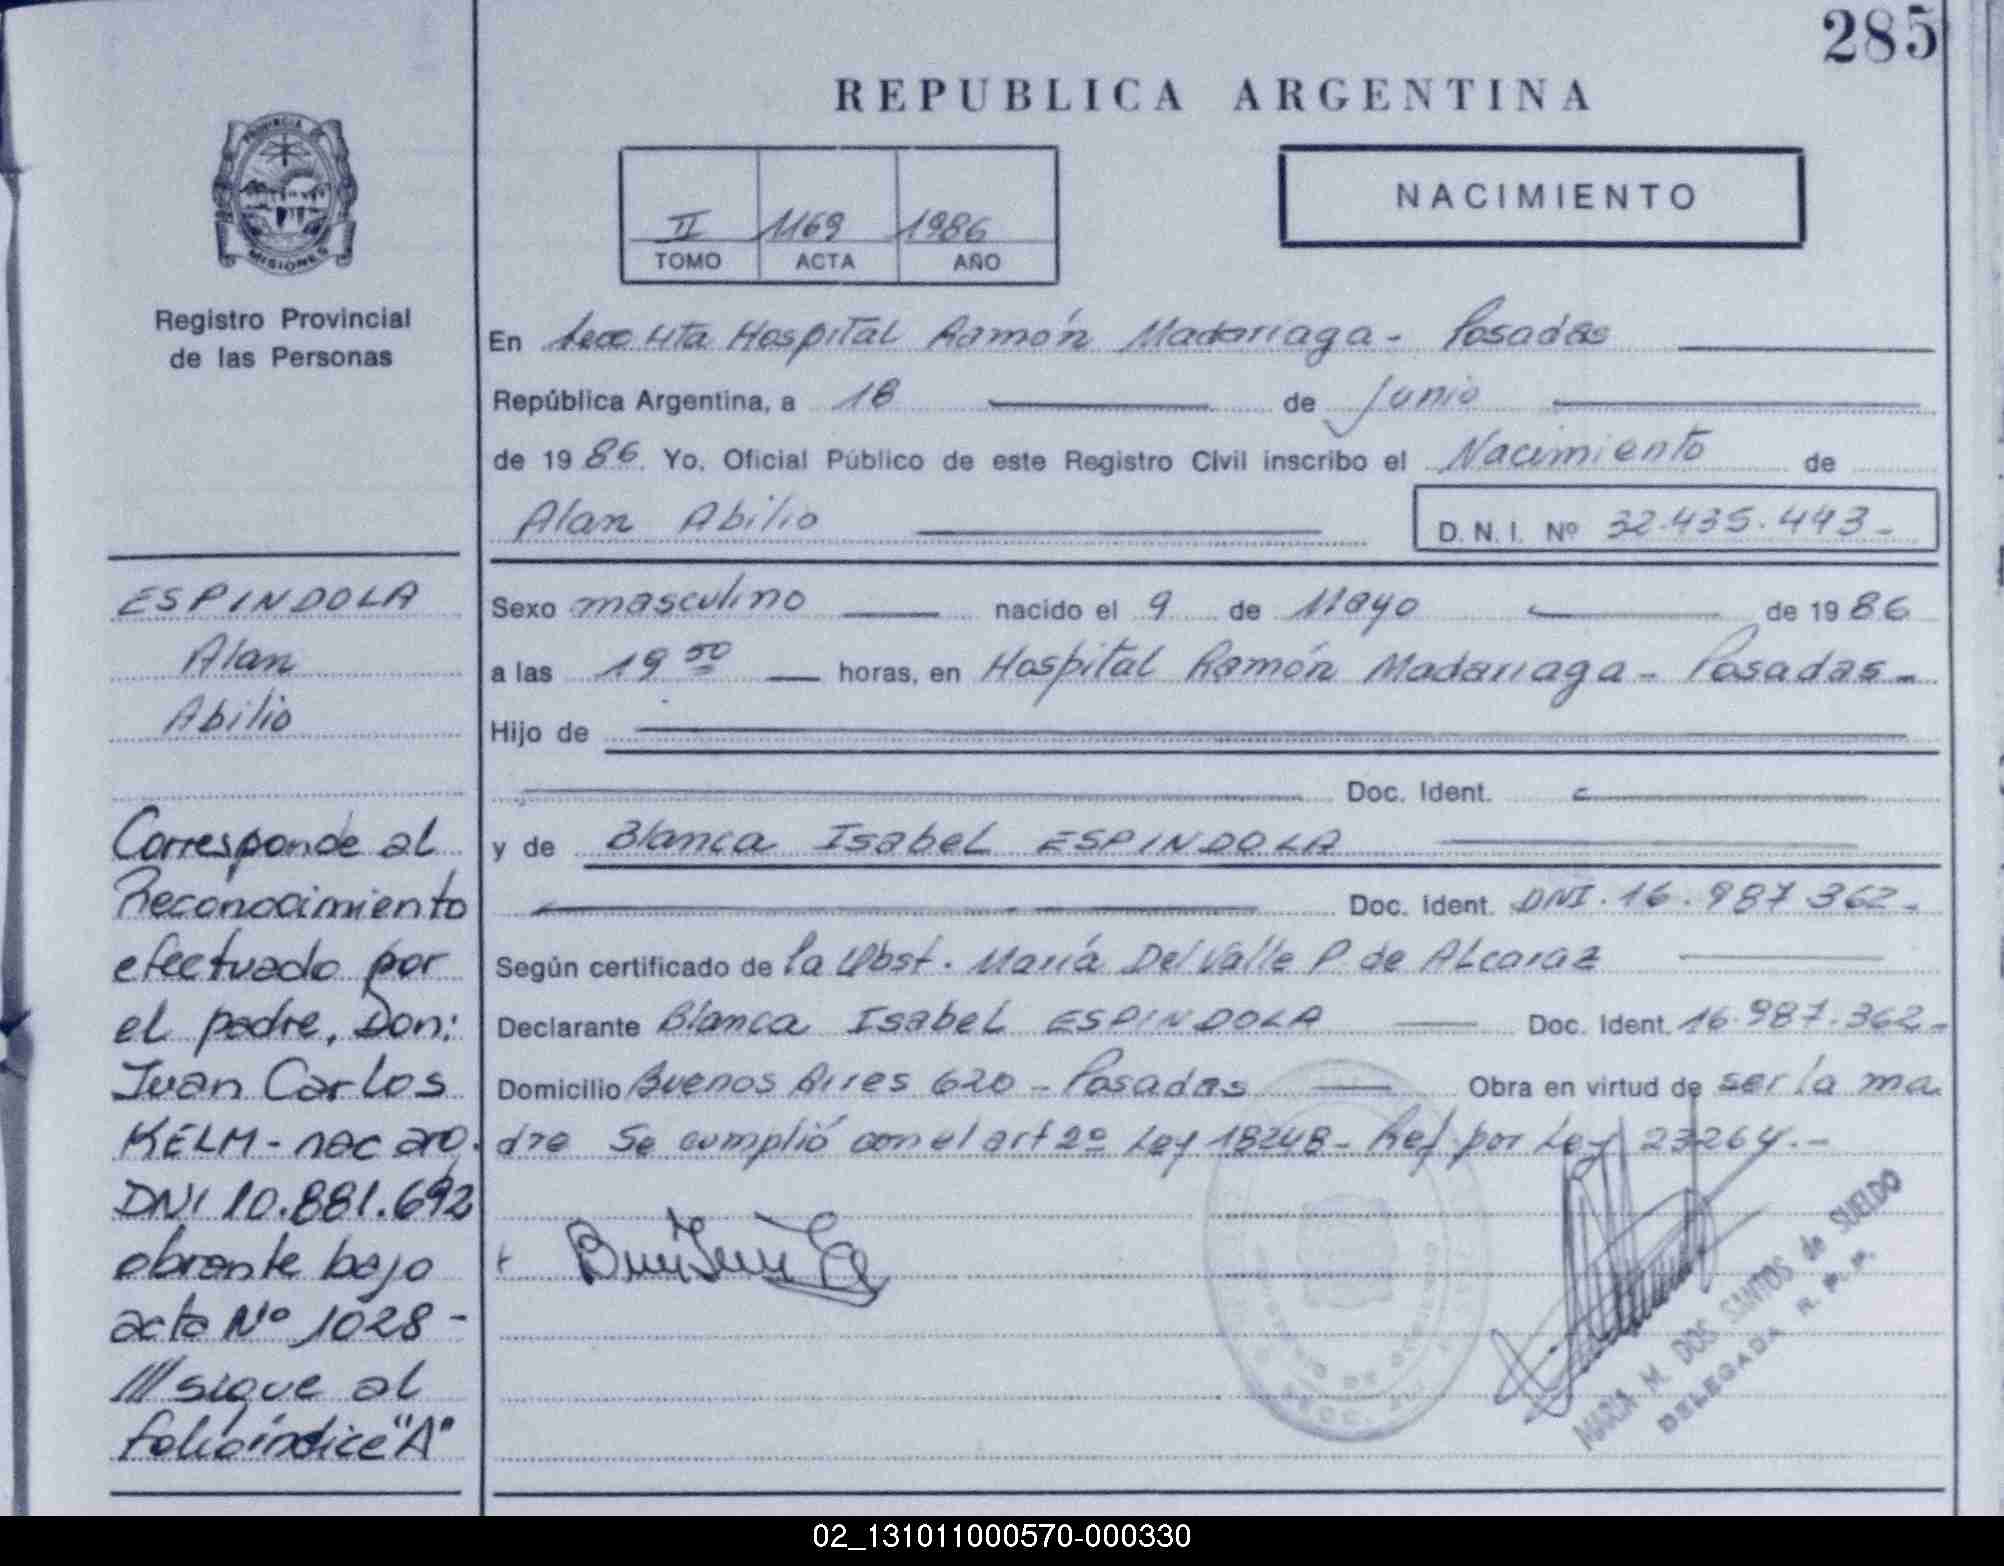 285
REPUBLICA ARGENTINA
PROVINCIA DE
MISIONES
Registro Provincial
de las Personas
II 1169 1986
TOMO ACTA AÑO
NACIMIENTO
En Hospital Ramón Madariaga - Posadas
República Argentina, a 18 de Junio
de 1986. Yo, Oficial Público de este Registro Civil inscribo el Nacimiento de
Alan Abilio
D. N. I. Nº 32.435.443-
ESPINDOLA
Alan
Abilio
Corresponde al
Reconocimiento
efectuado por
el padre, Don:
Juan Carlos
KELM - nac arg.
DNI 10.881.692
obrante bajo
acta Nº 1028 -
/// sigue al
folio índice "A"
Sexo masculino nacido el 9 de Mayo de 1986
a las 19 50 horas, en Hospital Ramón Madariaga - Posadas -
Hijo de
Doc. Ident.
y de Blanca Isabel ESPINDOLA
Doc. Ident. DNI. 16.987.362-
Según certificado de la Obst. María Del Valle P. de Alcaraz
Declarante Blanca Isabel ESPINDOLA Doc. Ident. 16.987.362-
Domicilio Buenos Aires 620 - Posadas Obra en virtud de ser la ma
dre Se cumplió con el art 2º Ley 18248 - Ref. por Ley 23264.-
MARIA M. DOS SANTOS de SUELDO
DELEGADA R. P. P.
02_131011000570-000330